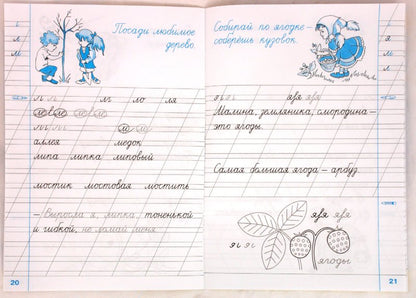 Посади любимое
дерево.
л м ло ля
аллея медок
липа липка липовый
мостик мостовая мостить
– Выросла я, липка, тоненькой
и гибкой, не ломай меня.
20
Собирай по ягодке –
соберёшь кузовок.
я я
Малина, земляника, смородина –
это ягоды.
Самая большая ягода – арбуз.
я я
ягоды
21